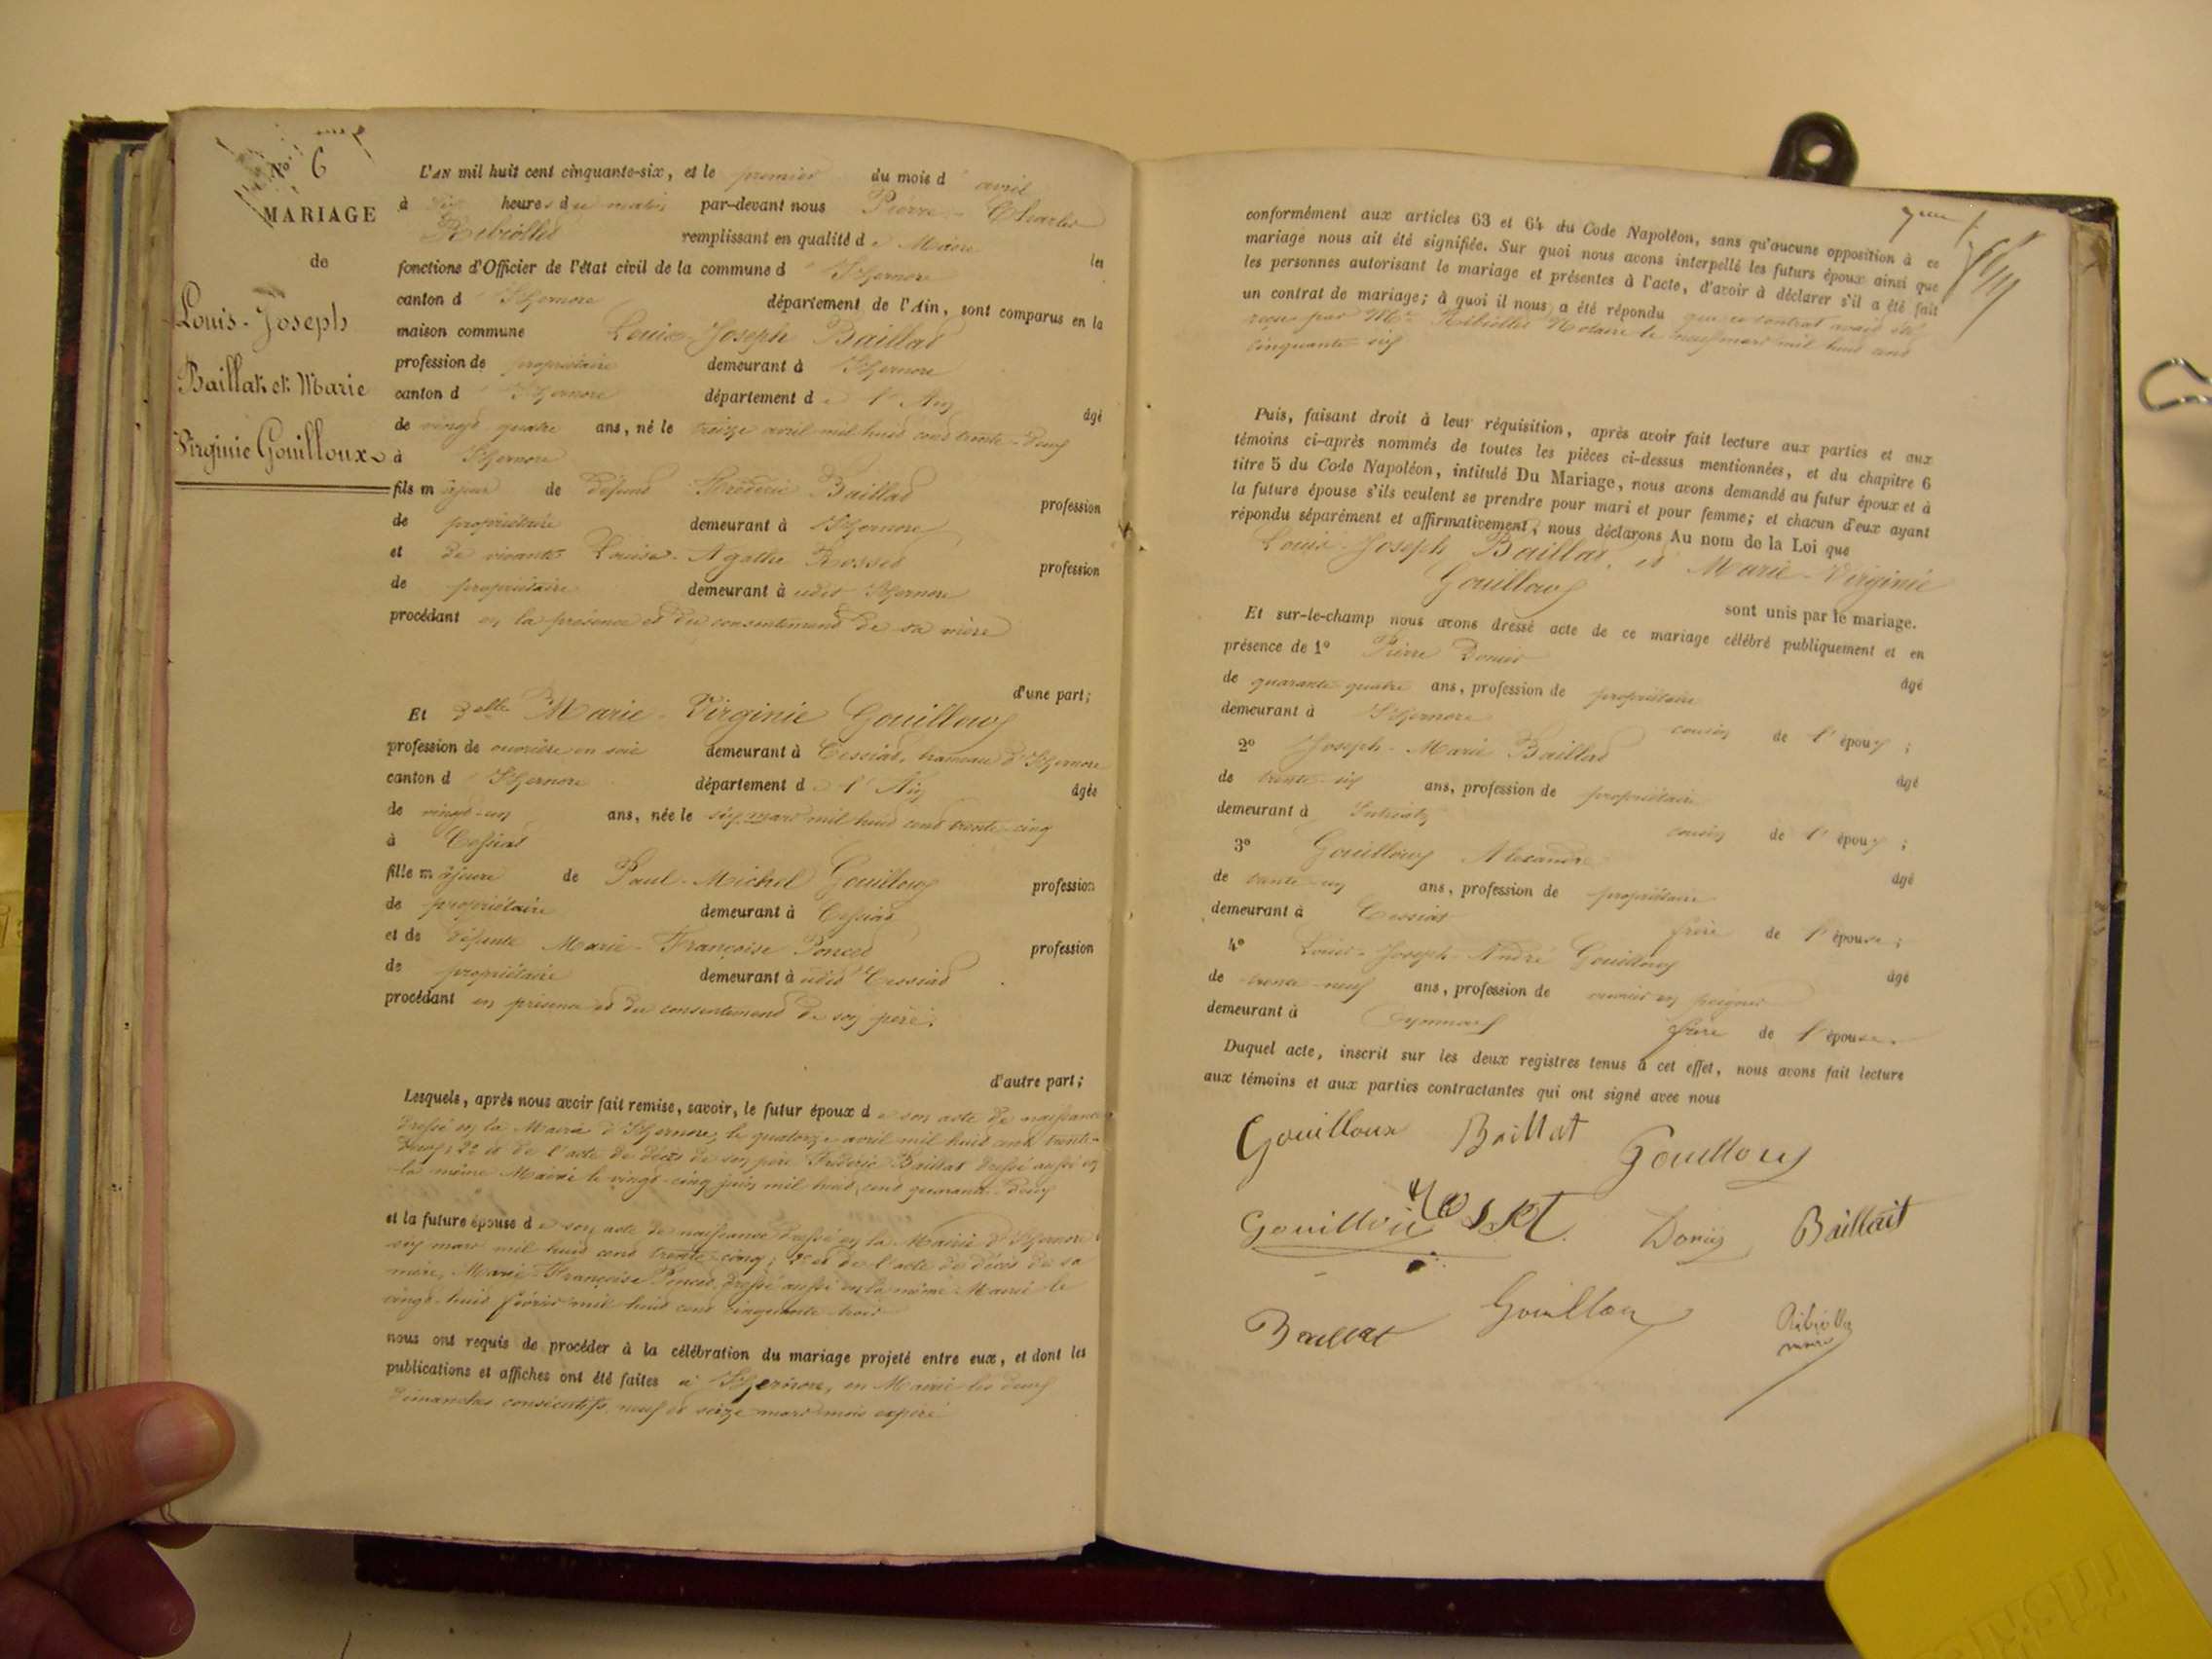 No 6
MARIAGE
de
Louis-Joseph
Baillat et Marie
Virginie Gouilloux
L'AN mil huit cent cinquante-six, et le premier du mois d'avril
à dix heures du matin par-devant nous Pierre-Charles
Ribiollet remplissant en qualité de Maire les
fonctions d'Officier de l'état civil de la commune d'Izernore
canton d'Izernore département de l'Ain, sont comparus en la
maison commune Louis-Joseph Baillat
profession de propriétaire demeurant à Izernore
canton d'Izernore département de l'Ain âgé
de vingt quatre ans, né le treize avril mil huit cent trente-deux
à Izernore
fils majeur de défunt Frédéric Baillat profession
de propriétaire demeurant à Izernore
et de vivante Louise-Agathe Rosset profession
de propriétaire demeurant à udit Izernore
procédant en la présence et du consentement de sa mère
d'une part;
Et Delle Marie-Virginie Gouilloux
profession de ouvrière en soie demeurant à Cessiat, hameau d'Izernore
canton d'Izernore département de l'Ain âgée
de vingt-un ans, née le six mars mil huit cent trente-cinq
à Cessiat
fille majeure de Paul-Michel Gouilloux profession
de propriétaire demeurant à Cessiat
et de défunte Marie-Françoise Poncet profession
de propriétaire demeurant à udit Cessiat
procédant en présence et du consentement de son père.
d'autre part;
Lesquels, après nous avoir fait remise, savoir, le futur époux de son acte de naissance
dressé en la Mairie d'Izernore, le quatorze avril mil huit cent trente-
deux; 2° et de l'acte de décès de son père Frédéric Baillat dressé aussi en
la même Mairie le vingt-cinq juin mil huit cent quarante-deux
et la future épouse de son acte de naissance dressé en la Mairie d'Izernore
six mars mil huit cent trente-cinq; 2° et de l'acte de décès de sa
mère, Marie-Françoise Poncet dressé aussi en la même Mairie le
vingt-huit février mil huit cent cinquante-trois
nous ont requis de procéder à la célébration du mariage projeté entre eux, et dont les
publications et affiches ont été faites à Izernore, en Mairie les deux
dimanches consécutifs neuf et seize mars mois expiré
conformément aux articles 63 et 64 du Code Napoléon, sans qu'aucune opposition à ce
mariage nous ait été signifiée. Sur quoi nous avons interpellé les futurs époux ainsi que
les personnes autorisant le mariage et présentes à l'acte, d'avoir à déclarer s'il a été fait
un contrat de mariage; à quoi il nous a été répondu que ce contrat avait été
reçu par Me Ribiollet Notaire le neuf mars mil huit cent
cinquante-six
Puis, faisant droit à leur réquisition, après avoir fait lecture aux parties et aux
témoins ci-après nommés de toutes les pièces ci-dessus mentionnées, et du chapitre 6
titre 5 du Code Napoléon, intitulé Du Mariage, nous avons demandé au futur époux et à
la future épouse s'ils veulent se prendre pour mari et pour femme; et chacun d'eux ayant
répondu séparément et affirmativement, nous déclarons Au nom de la Loi que
Louis-Joseph Baillat, et Marie-Virginie
Gouilloux
sont unis par le mariage.
Et sur-le-champ nous avons dressé acte de ce mariage célébré publiquement et en
présence de 1° Pierre âgé
de quarante quatre ans, profession de propriétaire
demeurant à Izernore cousin de l'époux;
2° Joseph-Marie Baillat âgé
de trente-six ans, profession de propriétaire
demeurant à Intriat cousin de l'époux;
3° Gouilloux Alexandre âgé
de trente-un ans, profession de propriétaire
demeurant à Cessiat frère de l'épouse;
4° Louis-Joseph-André Gouilloux âgé
de trente-neuf ans, profession de ouvrier en peignes
demeurant à Oyonnax frère de l'épouse.
Duquel acte, inscrit sur les deux registres tenus à cet effet, nous avons fait lecture
aux témoins et aux parties contractantes qui ont signé avec nous
Gouilloux Baillat Gouilloux
Gouilloux Rosset Baillait
Baillat Gouilloux Ribiollet
maire